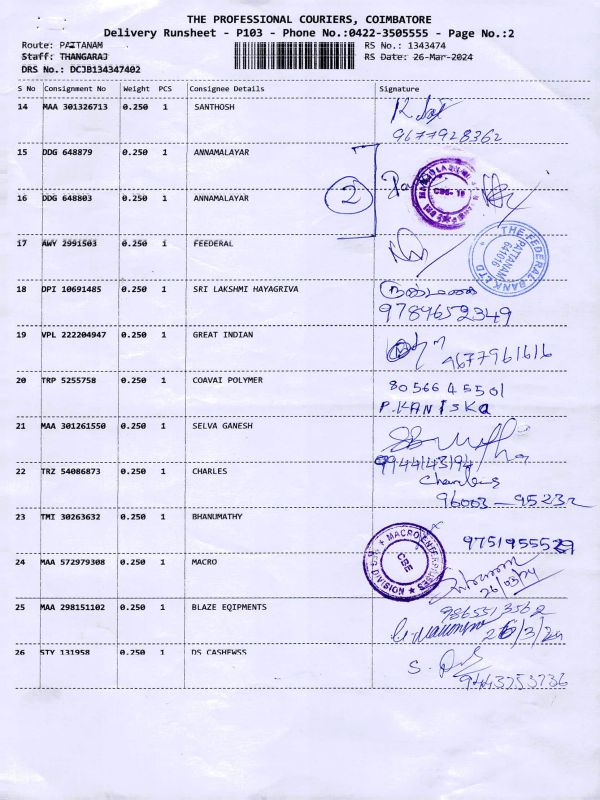 THE PROFESSIONAL COURIERS, COIMBATORE
Delivery Runsheet - P103 - Phone No.:0422-3505555 - Page No.:2
Route: PATTANAM RS No.: 1343474
Staff: THANGARAJ RS Date: 26-Mar-2024
DRS No.: DCJB134347402
S No Consignment No Weight PCS Consignee Details Signature
14 MAA 301326713 0.250 1 SANTHOSH
9677928362
15 DDG 648879 0.250 1 ANNAMALAYAR
2
16 DDG 648803 0.250 1 ANNAMALAYAR
17 AWY 2991503 0.250 1 FEEDERAL
THE FEDERAL BANK LTD
PATTANAM
641016
18 DPI 10691485 0.250 1 SRI LAKSHMI HAYAGRIVA
9789652349
19 VPL 222204947 0.250 1 GREAT INDIAN
9677961616
20 TRP 5255758 0.250 1 COAVAI POLYMER
80566 45501
P.KANISKA
21 MAA 301261550 0.250 1 SELVA GANESH
9944143194
22 TRZ 54086873 0.250 1 CHARLES
Charles
96003-95232
23 TMI 30263632 0.250 1 BHANUMATHY
9751955529
24 MAA 572979308 0.250 1 MACRO
MACRO ENTERPRISES
CBE
DIVISION
26/03/24
25 MAA 298151102 0.250 1 BLAZE EQIPMENTS
9865513562
26/3/24
26 STY 131958 0.250 1 DS CASHEWSS
9443753736